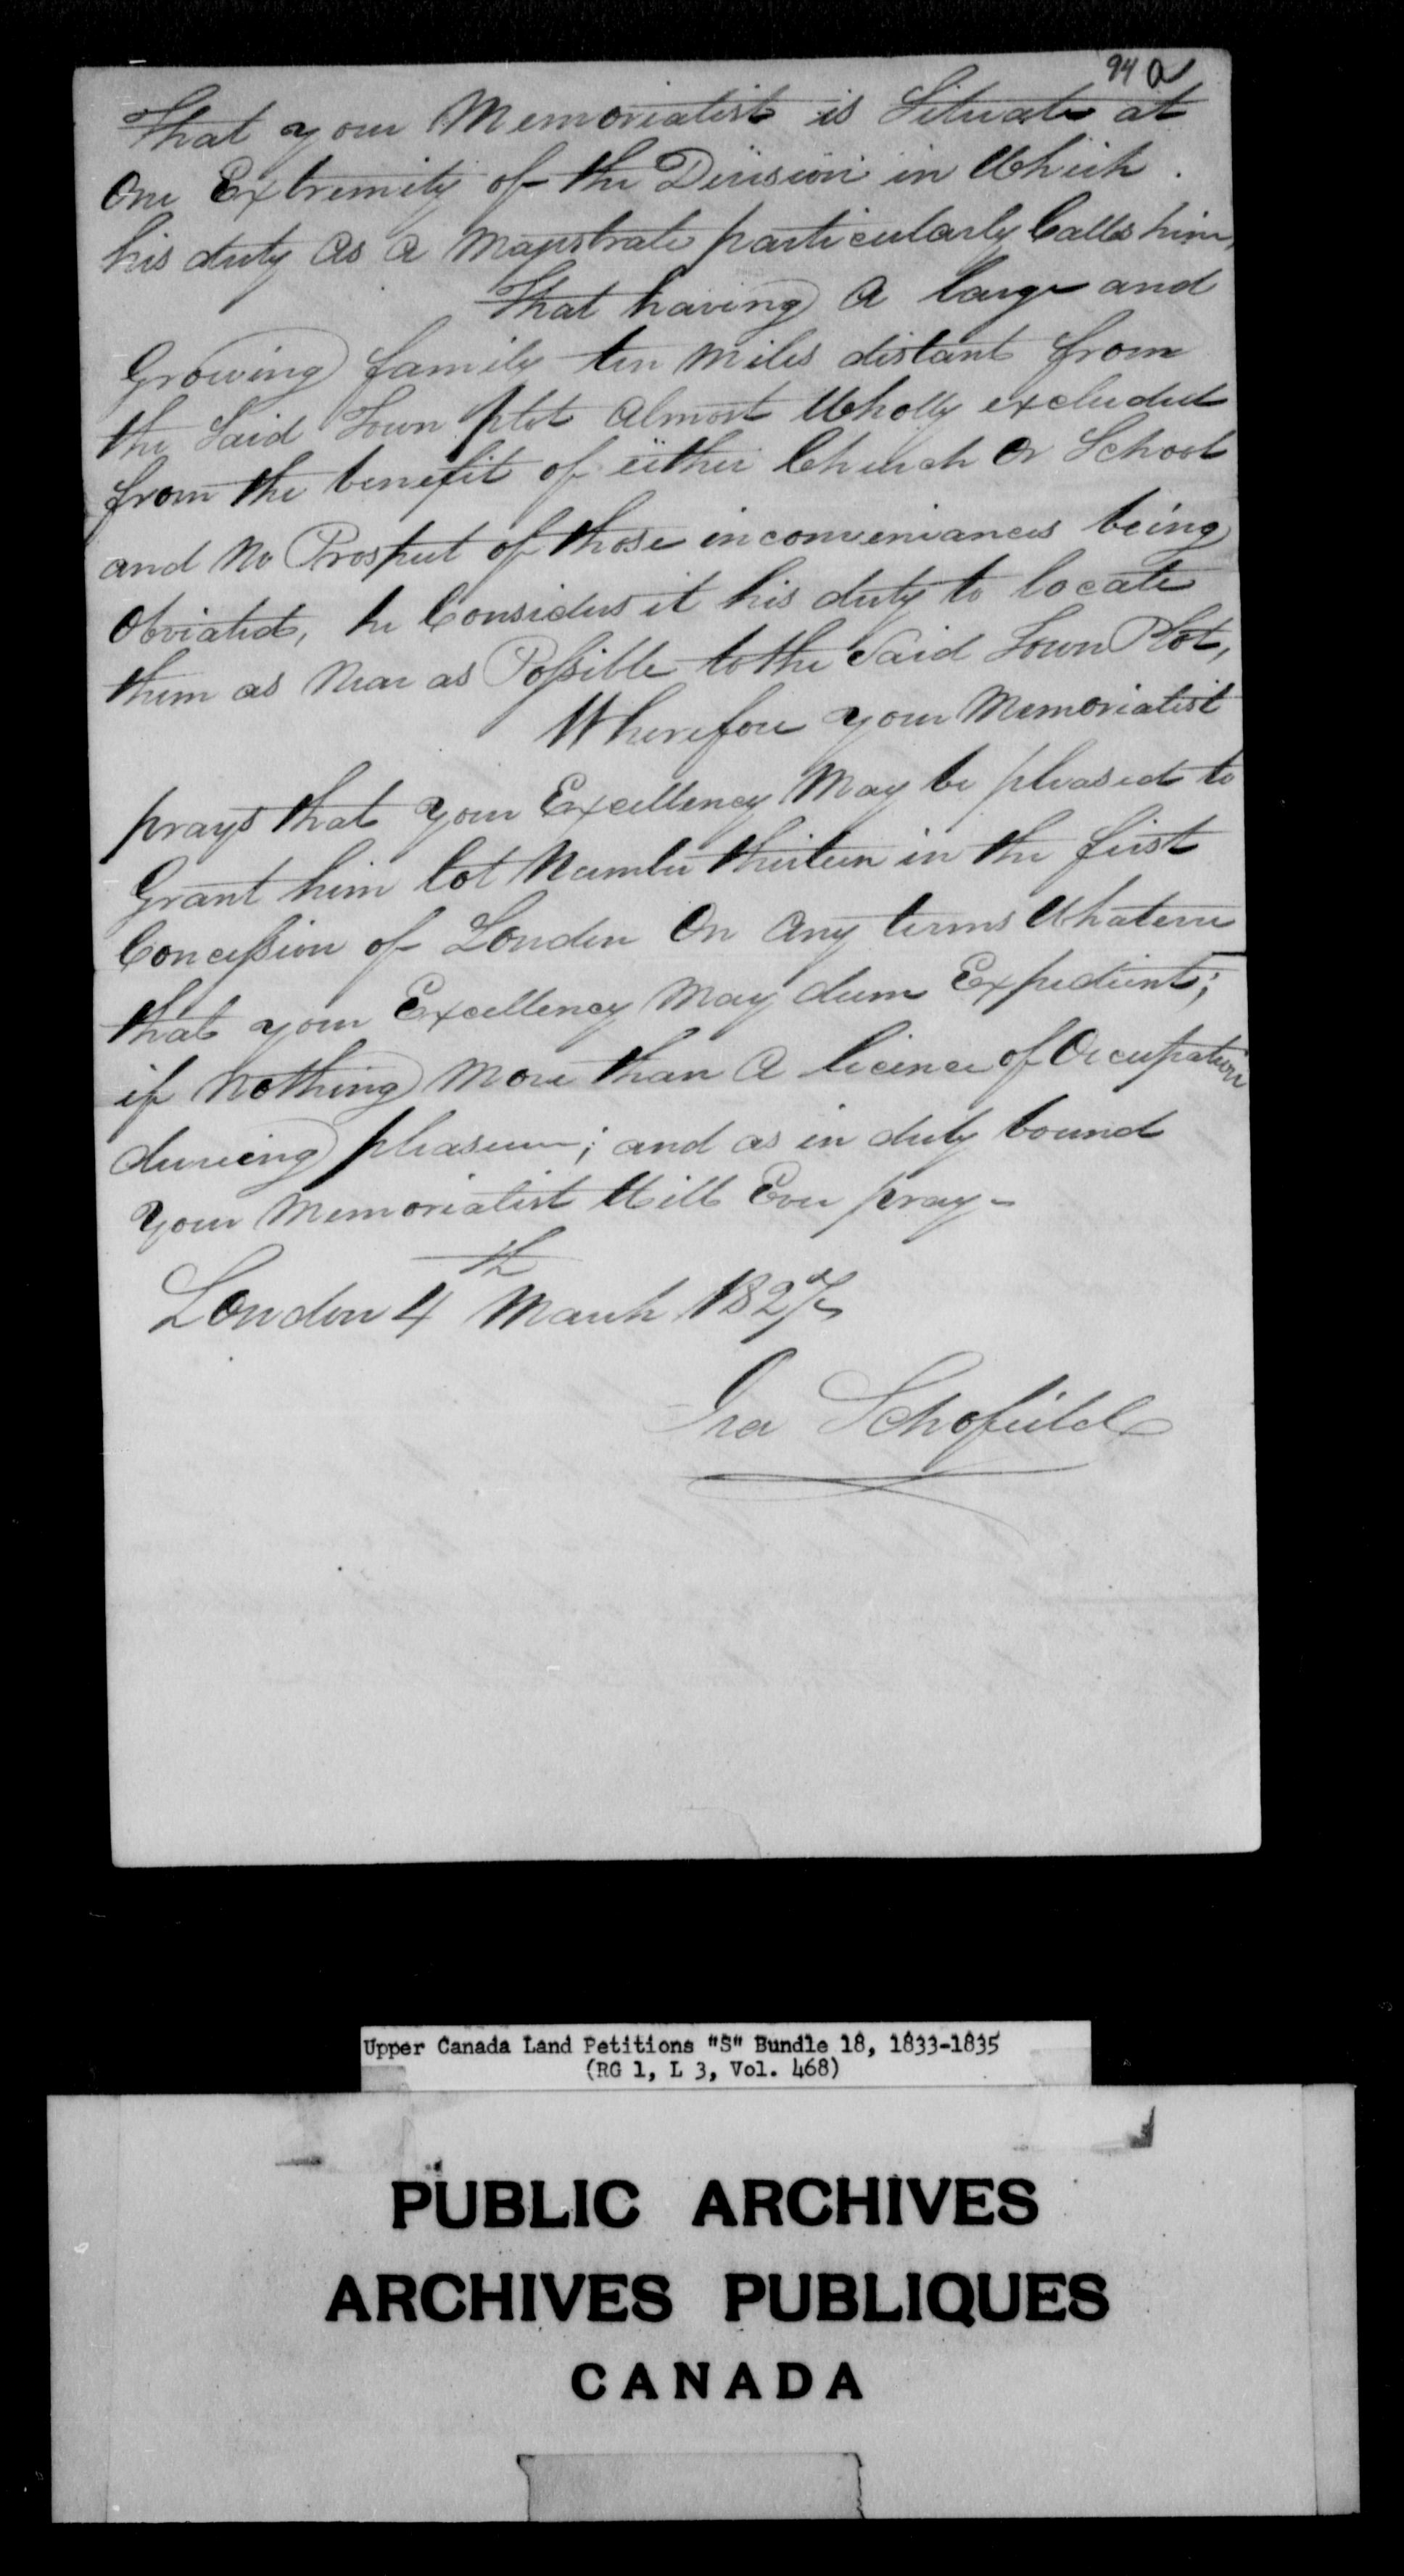 94 a
That your Memorialist is Situate at
One Extremity of the Division in Which
his duty As A Magistrate particularly Calls him,
That having A large and
Growing family ten Miles distant from
the Said Town plot Almost Wholly excluded
from the benefit of either Church Or School
and No Prospect of those inconveniances being
Obviated, he Considers it his duty to locate
them as Near as Possible to the Said Town Plot,
Wherefore your Memorialist
prays that your Excellency May be pleased to
Grant him lot Number thirteen in the first
Concession of London On Any terms Whatever
that your Excellency May deem Expedient;
if Nothing More than A licence of Occupation
dureing pleasure; and as in duty bound
your Memorialist Will Ever pray-
London 4th March 1827
Ira Schofield
Upper Canada Land Petitions "S" Bundle 18, 1833-1835
(RG 1, L 3, Vol. 468)
PUBLIC ARCHIVES
ARCHIVES PUBLIQUES
CANADA